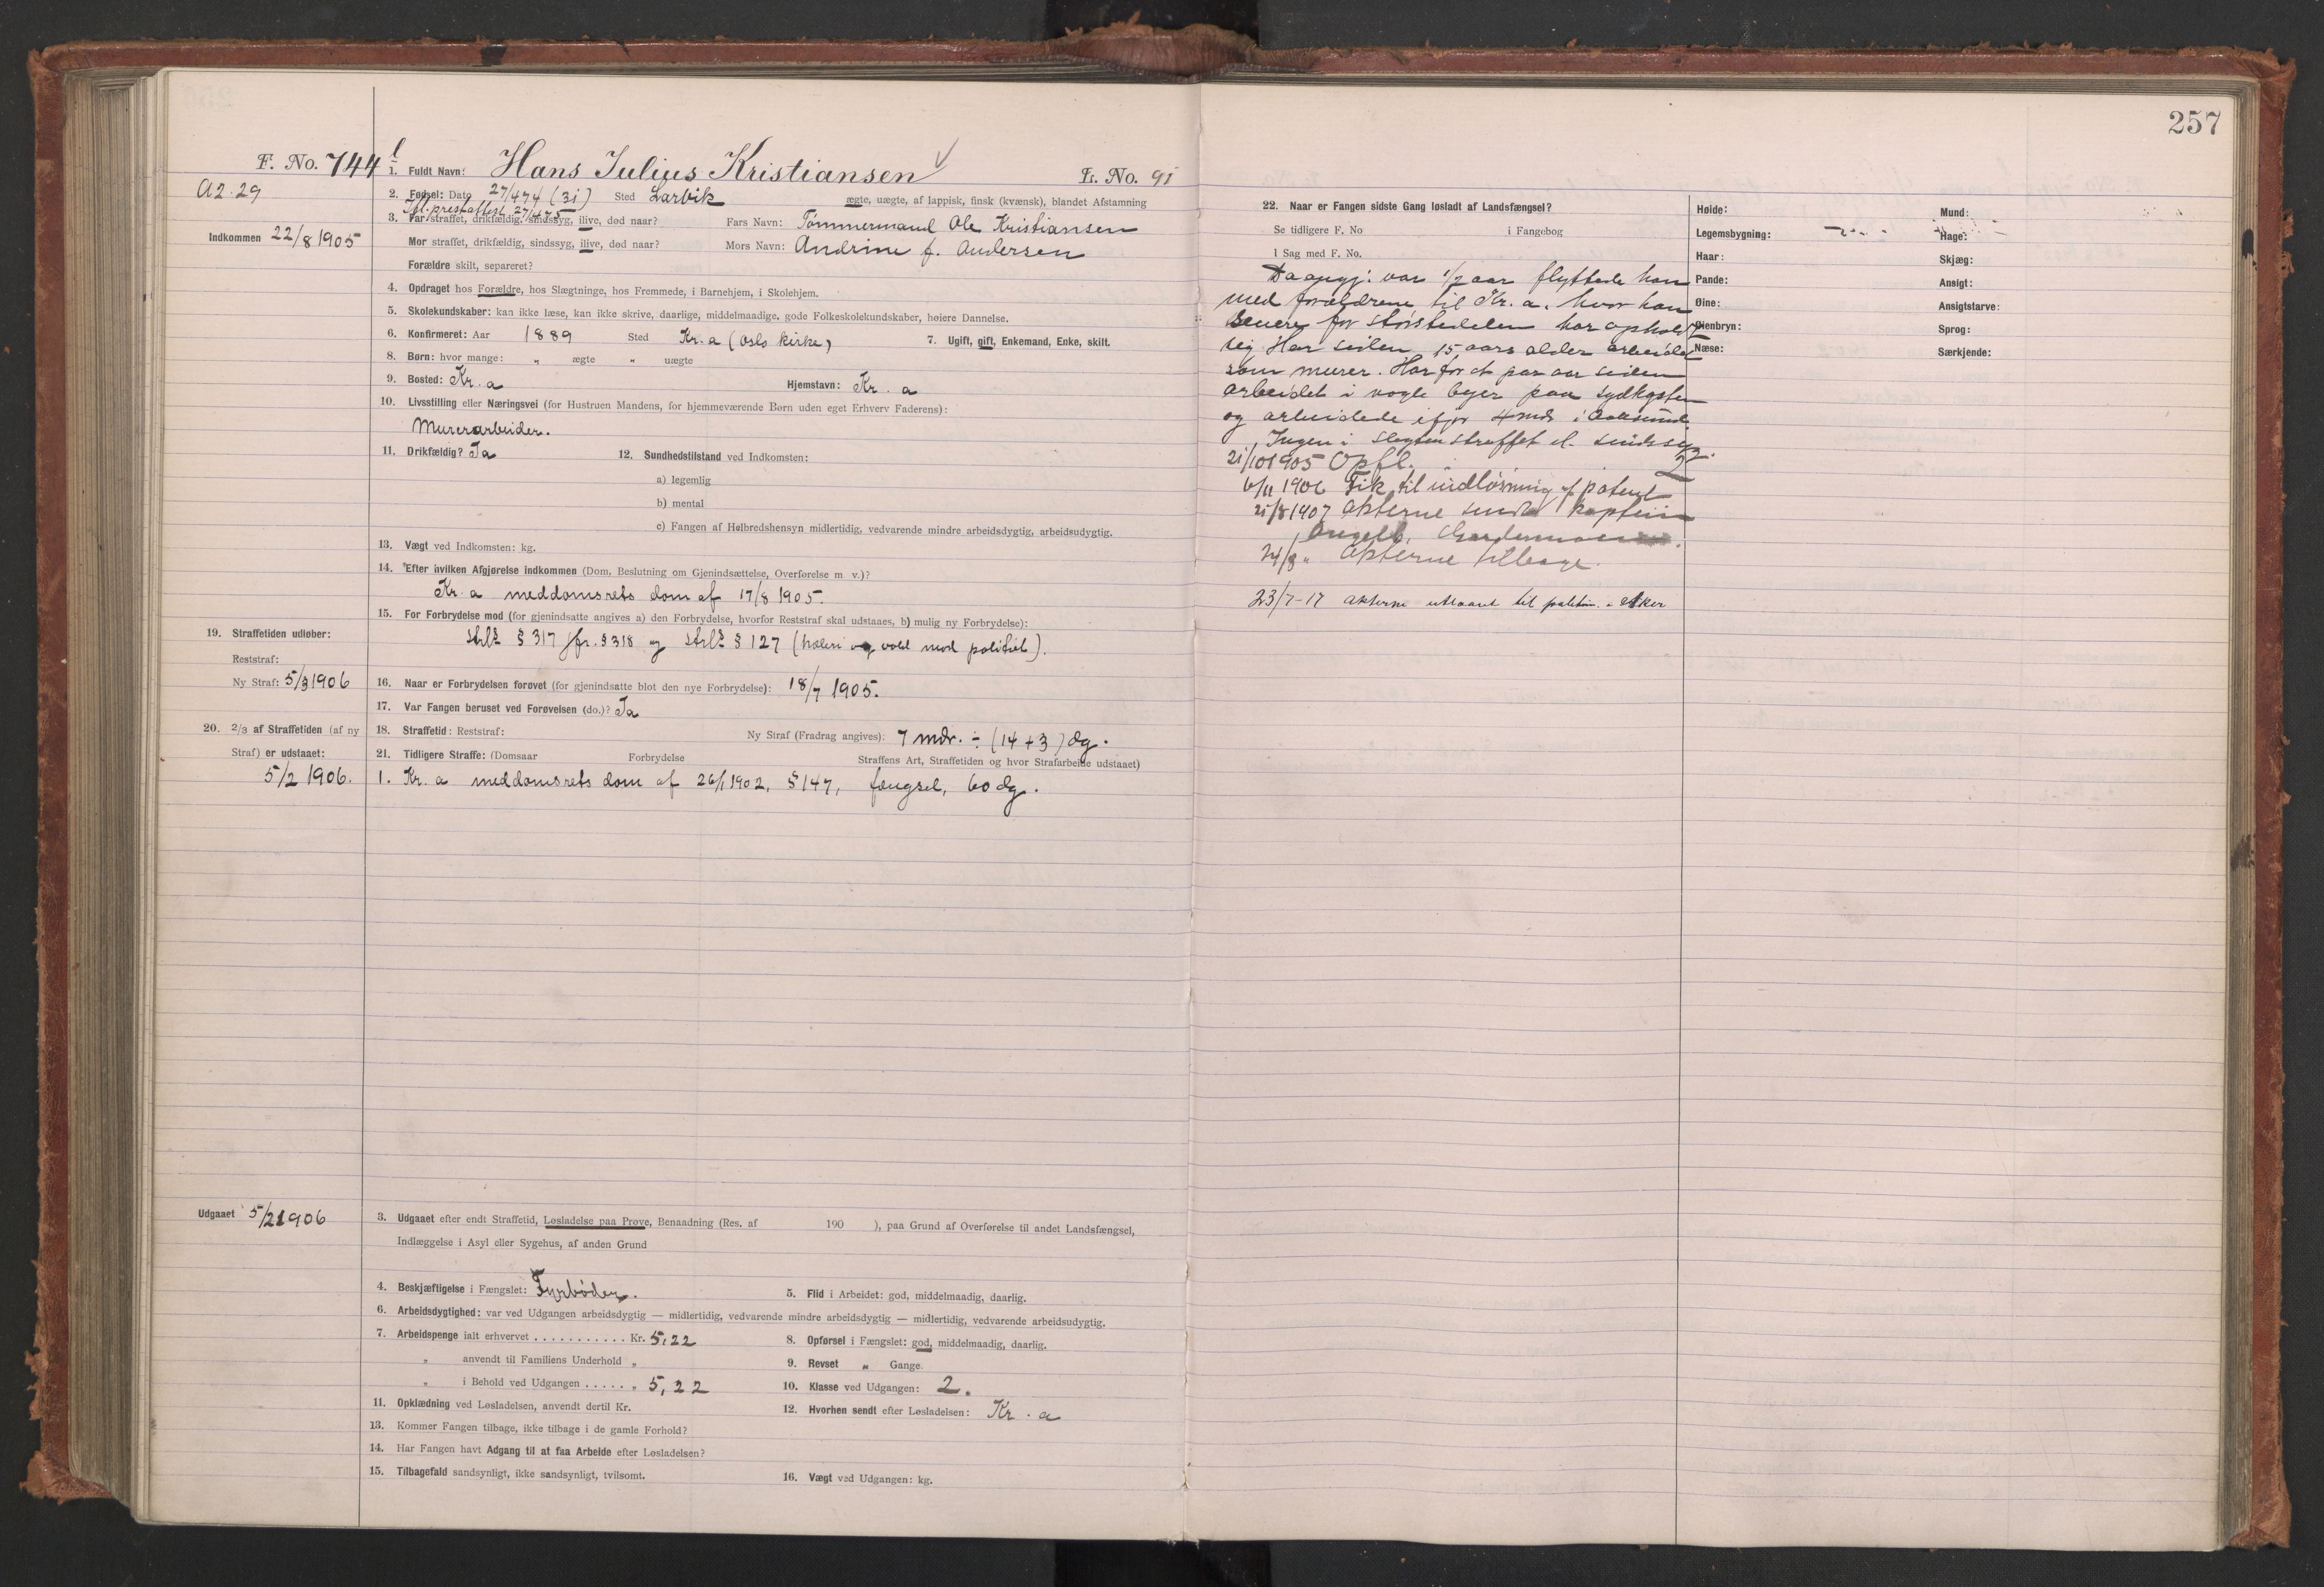 257
F. No. 744
A2.29
Indkommen 22/8 1905
1. Fuldt Navn: Hans Julius Kristiansen L. No. 91
2. Fødsel: Dato 27/4 74 (31) Sted Larvik ægte, uægte, af lappisk, finsk (kvænsk), blandet Afstamning
Ifl. prestattest 27/4 75
3. Far straffet, drikfældig, sindssyg, ilive, død naar? Fars Navn: Tømmermand Ole Kristiansen
Mor straffet, drikfældig, sindssyg, ilive, død naar? Mors Navn: Andrine f. Andersen
Forældre skilt, separeret?
4. Opdraget hos Forældre, hos Slægtninge, hos Fremmede, i Barnehjem, i Skolehjem.
5. Skolekundskaber: kan ikke læse, kan ikke skrive, daarlige, middelmaadige, gode Folkeskolekundskaber, høiere Dannelse.
6. Konfirmeret: Aar 1889 Sted Kr.a (Oslo kirke) 7. Ugift, gift, Enkemand, Enke, skilt.
8. Børn: hvor mange: " ægte " uægte
9. Bosted: Kr. a Hjemstavn: Kr. a
10. Livsstilling eller Næringsvei (for Hustruen Mandens, for hjemmeværende Børn uden eget Erhverv Faderens):
Murerarbeider.
11. Drikfældig? Ja 12. Sundhedstilstand ved Indkomsten:
a) legemlig
b) mental
c) Fangen af Helbredshensyn midlertidig, vedvarende mindre arbeidsdygtig, arbeidsudygtig.
13. Vægt ved Indkomsten: kg.
14. Efter hvilken Afgjørelse indkommen (Dom, Beslutning om Gjenindsættelse, Overførelse m v.)?
Kr. a meddomsrets dom af 17/8 1905.
15. For Forbrydelse mod (for gjenindsatte angives a) den Forbrydelse, hvorfor Reststraf skal udstaaes, b) mulig ny Forbrydelse):
strl. § 317 jfr. § 318 og strl. § 127 (heleri og vold mod politiet).
19. Straffetiden udløber:
Reststraf:
Ny Straf: 5/3 1906
16. Naar er Forbrydelsen forøvet (for gjenindsatte blot den nye Forbrydelse): 18/7 1905.
17. Var Fangen beruset ved Forøvelsen (do.)? Ja
20. 2/3 af Straffetiden (af ny
Straf) er udstaaet:
5/2 1906.
18. Straffetid: Reststraf: Ny Straf (Fradrag angives): 7 mdr. ÷ (14 + 3) dg.
21. Tidligere Straffe: (Domsaar Forbrydelse Straffens Art, Straffetiden og hvor Strafarbeide udstaaet)
1. Kr. a meddomsrets dom af 26/1 1902, § 147, fængsel, 60 dg.
Udgaaet 5/2 1906
3. Udgaaet efter endt Straffetid, Løsladelse paa Prøve, Benaadning (Res. af 190 ), paa Grund af Overførelse til andet Landsfængsel,
Indlæggelse i Asyl eller Sygehus, af anden Grund
4. Beskjæftigelse i Fængslet: Fyrbøder. 5. Flid i Arbeidet: god, middelmaadig, daarlig.
6. Arbeidsdygtighed: var ved Udgangen arbeidsdygtig — midlertidig, vedvarende mindre arbeidsdygtig — midlertidig, vedvarende arbeidsudygtig.
7. Arbeidspenge ialt erhvervet ........... Kr. 5,22 8. Opførsel i Fængslet: god, middelmaadig, daarlig.
" anvendt til Familiens Underhold " 9. Revset " Gange.
" i Behold ved Udgangen ..... " 5,22 10. Klasse ved Udgangen: 2.
11. Opklædning ved Løsladelsen, anvendt dertil Kr. 12. Hvorhen sendt efter Løsladelsen: Kr. a
13. Kommer Fangen tilbage, ikke tilbage i de gamle Forhold?
14. Har Fangen havt Adgang til at faa Arbeide efter Løsladelsen?
15. Tilbagefald sandsynligt, ikke sandsynligt, tvilsomt. 16. Vægt ved Udgangen: kg.
22. Naar er Fangen sidste Gang løsladt af Landsfængsel?
Se tidligere F. No i Fangebog
I Sag med F. No.
Da angj. var 1/2 aar flyttede han
med forældrene til Kr. a. hvor han
senere for størstedelen har opholdt
sig Har siden 15 aars alder arbeidet
som murer. Har for et par aar siden
arbeidet i nogle byer paa sydkysten
og arbeidede ifjor 4 mdr i
Ingen i slegten straffet el. sindssyg.
21/10 1905 Opfl.
6/11 1906 Fik til indløsning af patent
21/8 1907 Akterne sendt kaptein
24/8 " Akterne tilbage.
23/7-17 Akterne utlaant til politim. i Aker
Høide:
Legemsbygning:
Haar:
Pande:
Øine:
Øienbryn:
Næse:
Mund:
Hage:
Skjæg:
Ansigt:
Ansigtsfarve:
Sprog:
Særkjende: